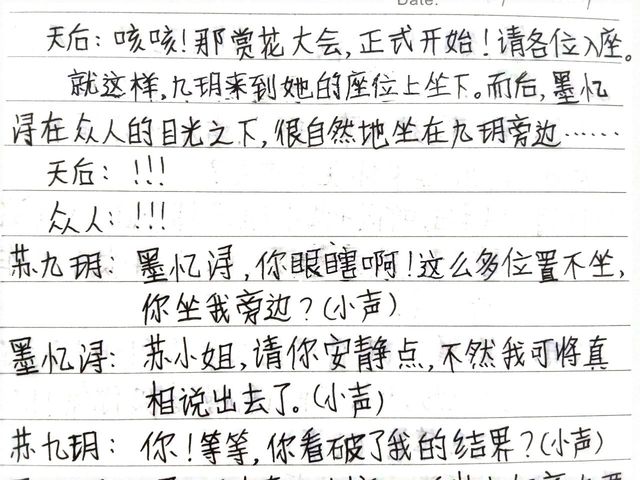 Date:
天后：咳咳！那赏花大会，正式开始！请各位入座。
就这样，九玥来到她的座位上坐下。而后，墨忆
浔在众人的目光之下，很自然地坐在九玥旁边……
天后：！！！
众人：！！！
苏九玥：墨忆浔，你眼瞎啊！这么多位置不坐，
你坐我旁边？（小声）
墨忆浔：苏小姐，请你安静点，不然我可将真
相说出去了。（小声）
苏九玥：你！等等，你看破了我的结界？（小声）